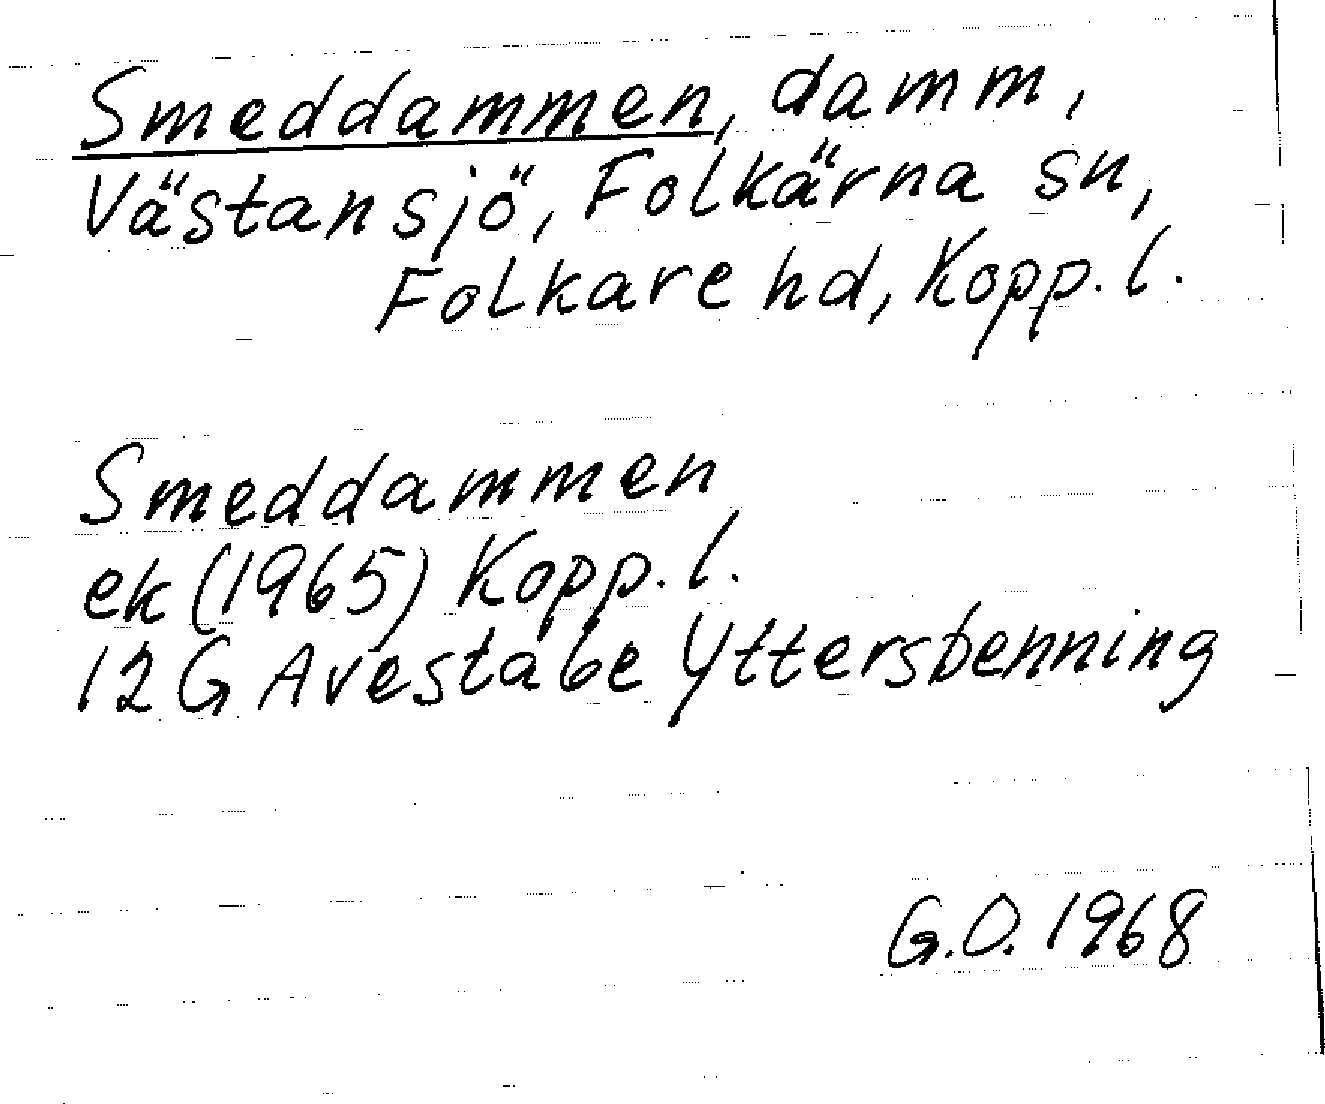 Smeddammen, damm,
Västansjö, Folkärna sn,
Folkare hd, Kopp. l.
Smeddammen
ek (1965) Kopp. l.
12 G Avesta 6e Yttersbenning
G.O. 1968